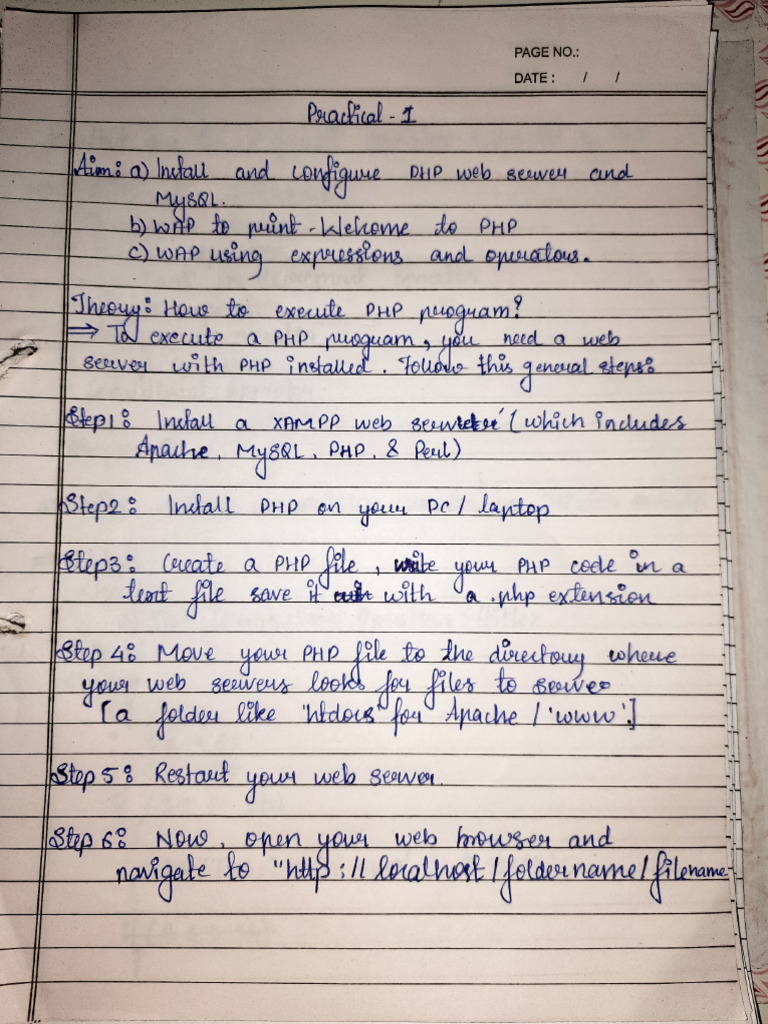 PAGE NO.:
DATE : / /
Practical - 1
Aim: a) Install and configure PHP web server and
MySQL.
b) WAP to print - Welcome to PHP
c) WAP using expressions and operators.
Theory: How to execute PHP program?
⇒ To execute a PHP program, you need a web
server with PHP installed. Follow this general steps:
Step 1: Install a XAMPP web server (which includes
Apache, MySQL, PHP, & Perl)
Step 2: Install PHP on your PC / laptop
Step 3: Create a PHP file, write your PHP code in a
text file save it with a .php extension
Step 4: Move your PHP file to the directory where
your web servers looks for files to serve
[a folder like 'htdocs' for Apache / 'www'.]
Step 5: Restart your web server.
Step 6: Now, open your web browser and
navigate to "http://localhost/foldername/filename